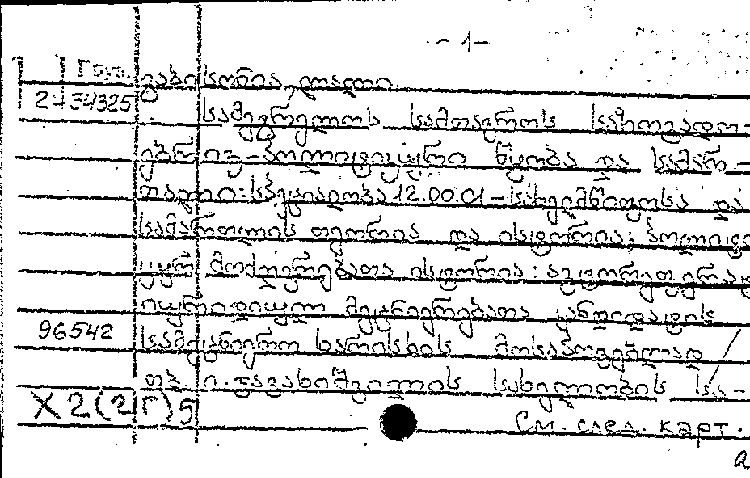 - 1 -
გაბისონია, ლალი
2434325
სამეგრელოს სამთავროს საზოგადო-
ებრივ-პოლიტიკური წყობა და სამარ-
თალი: სპეციალობა 12.00.01 - სახელმწიფოსა და
სამართლის თეორია და ისტორია; პოლიტი
კურ მოძღვრებათა ისტორია: ავტორეფერატ
იურიდიულ მეცნიერებათა კანდიდატის
96542 სამეცნიერო ხარისხის მოსაპოვებლად /
თბ. ი. ჯავახიშვილის სახელობის სა-
X2(2Г)5
См. след. карт.